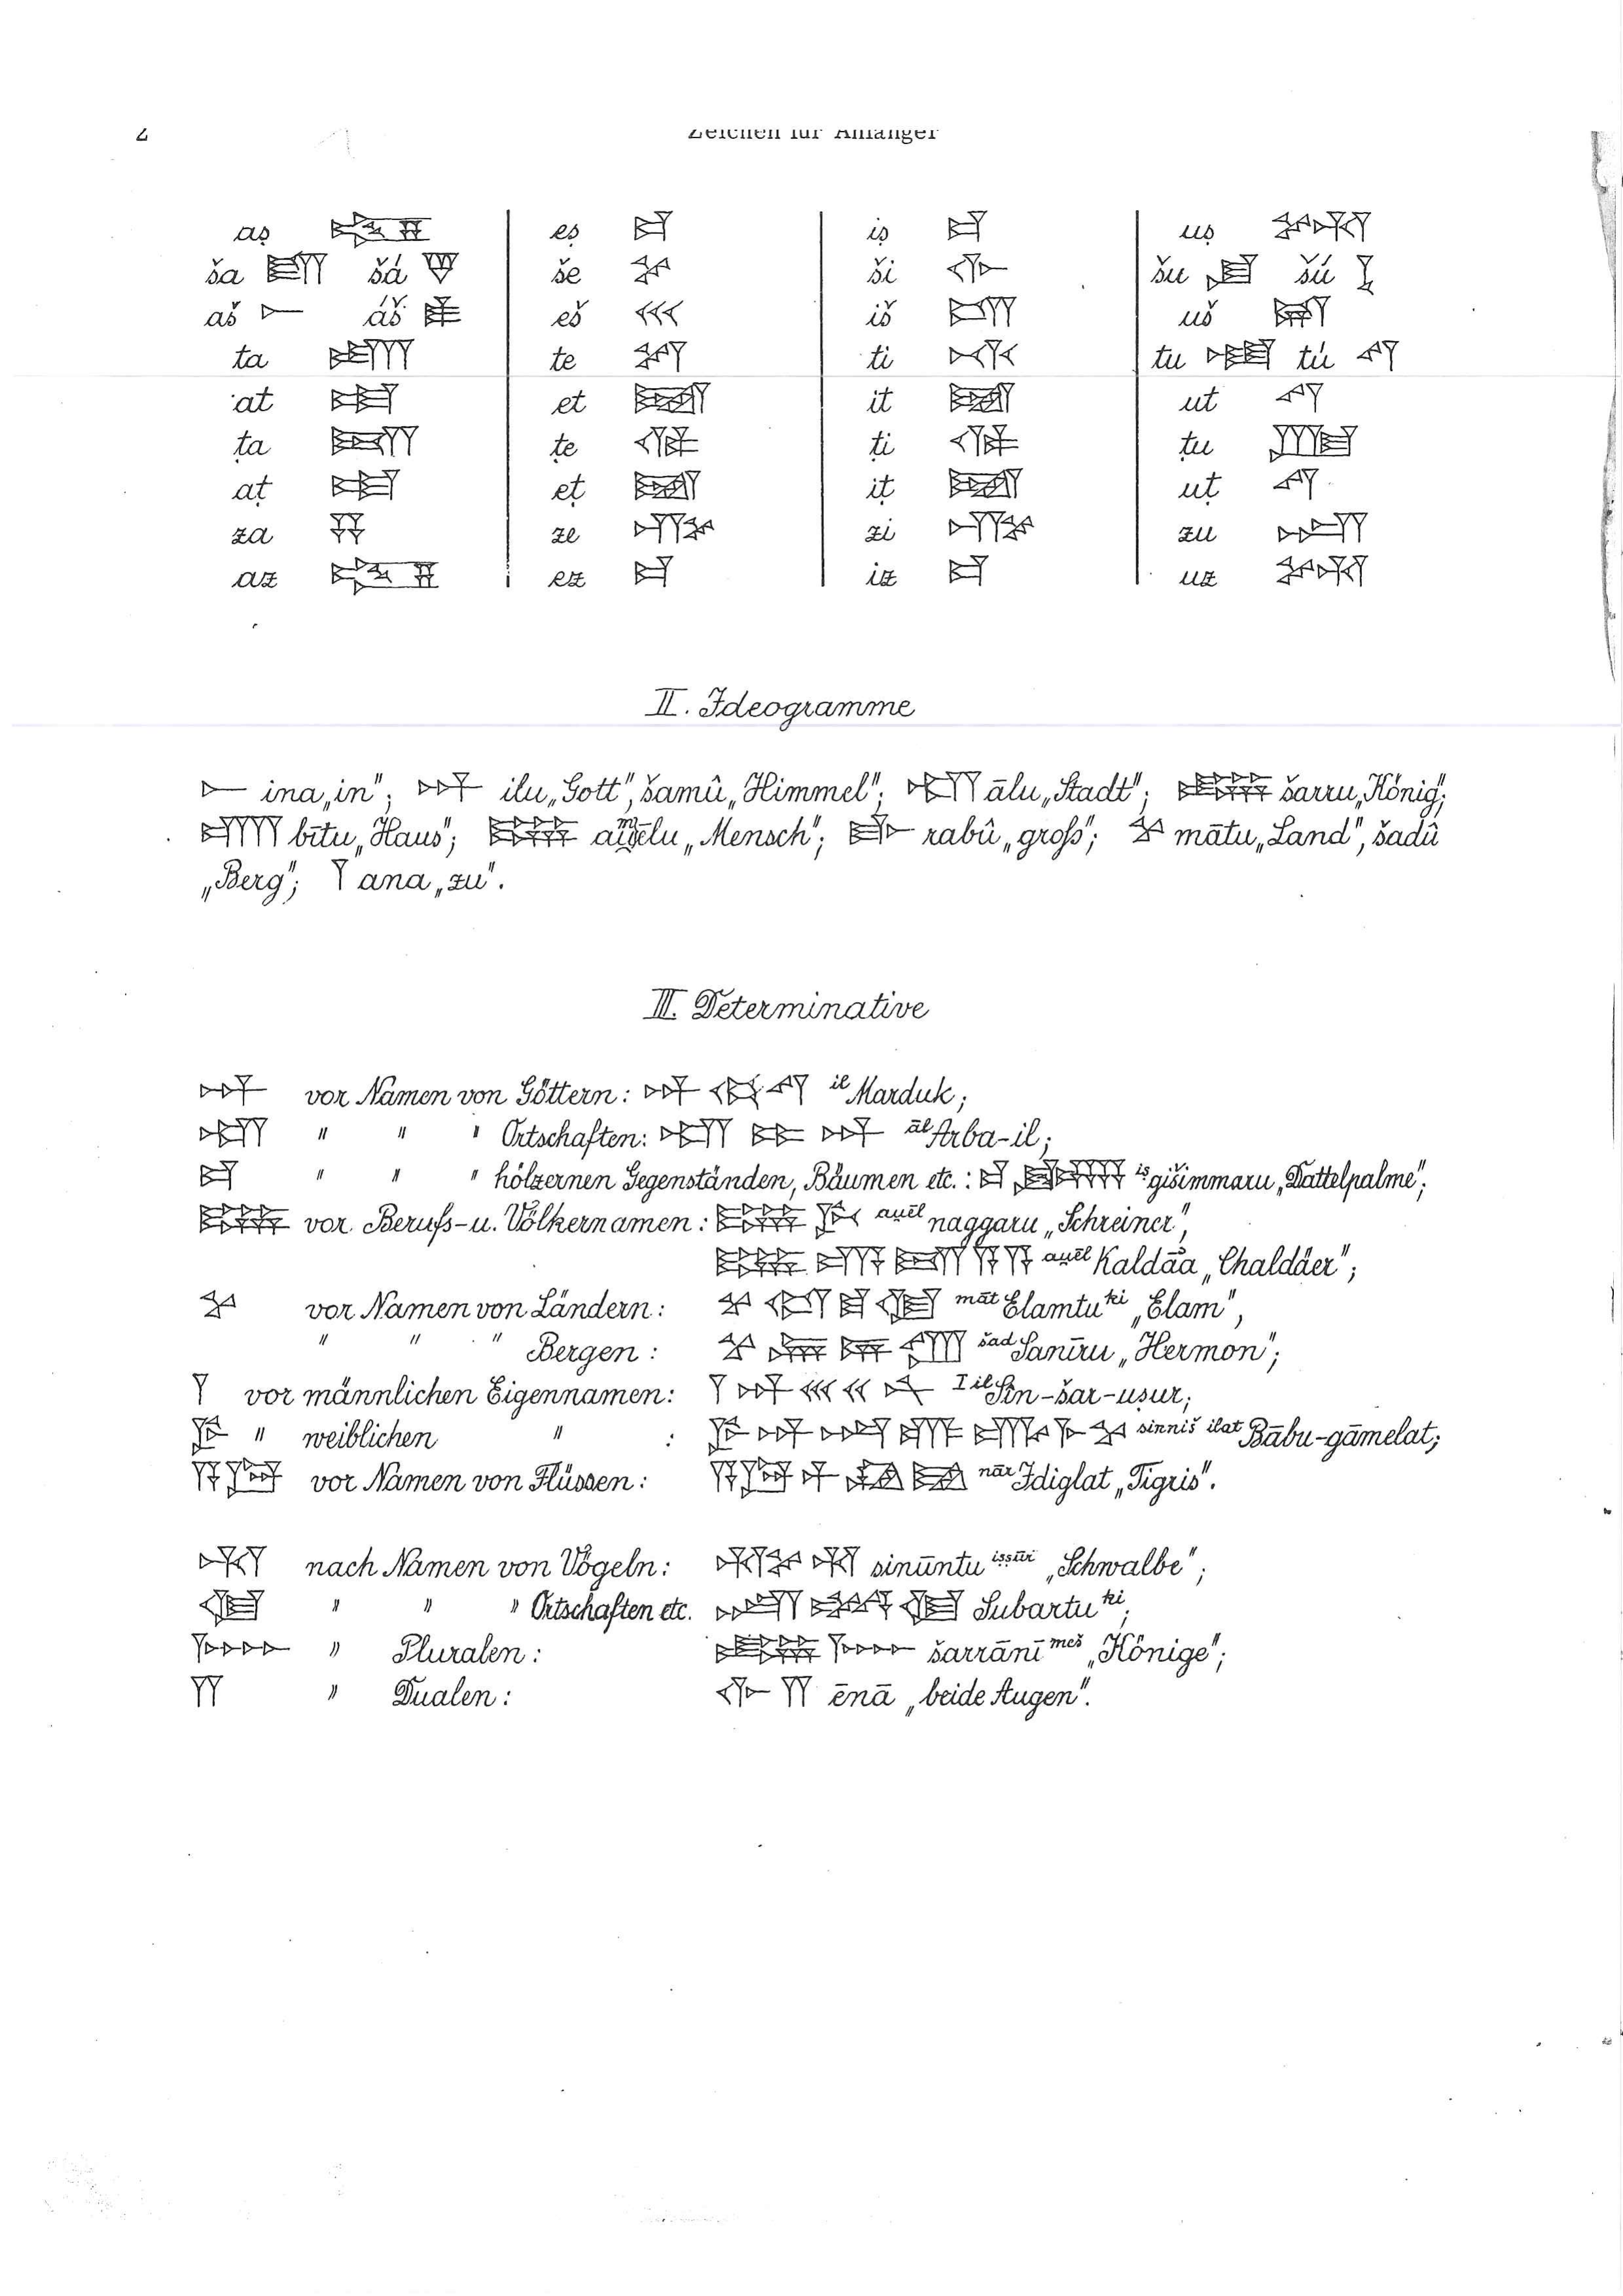 2 Zeichen für Anfänger
aṣ 𒊍 eṣ 𒄑 iṣ 𒄑 uṣ 𒊻
ša 𒊭 šá 𒃻 še 𒊺 ši 𒅆 šu 𒋗 šú 𒋙
aš 𒀸 áš 𒀾 eš 𒌍 iš 𒅖 uš 𒍑
ta 𒋫 te 𒋼 ti 𒋾 tu 𒌅 tú 𒌓
at 𒀜 et 𒀉 it 𒀉 ut 𒌓
ṭa 𒁕 ṭe 𒁲 ṭi 𒁲 ṭu 𒂅
aṭ 𒀜 eṭ 𒀉 iṭ 𒀉 uṭ 𒌓
za 𒍝 ze 𒍣 zi 𒍣 zu 𒍪
az 𒊍 ez 𒄑 iz 𒄑 uz 𒊻
II. Ideogramme
𒀸 ina „in"; 𒀭 ilu „Gott", šamû „Himmel"; 𒌷 ālu „Stadt"; 𒈗 šarru „König";
𒂍 bītu „Haus"; 𒇽 amēlu „Mensch"; 𒃲 rabû „groß"; 𒆳 mātu „Land", šadû
„Berg"; 𒁹 ana „zu".
III. Determinative
𒀭 vor Namen von Göttern: 𒀭 𒀫 𒌓 il Marduk;
𒌷 " " " Ortschaften: 𒌷 𒇹 𒀭 āl Arba-il;
𒄑 " " " hölzernen Gegenständen, Bäumen etc.: 𒄑 𒊷 iṣ gišimmaru „Dattelpalme";
𒇽 vor Berufs- u. Völkernamen: 𒇽 𒉄 auēl naggaru „Schreiner",
𒇽 𒆗 𒁕 𒀀 𒀀 auēl Kaldāa „Chaldäer";
𒆳 vor Namen von Ländern: 𒆳 𒉏 𒈠 𒆠 māt Elamtu ki „Elam",
" " " Bergen: 𒆳 šad Sanīru „Hermon";
𒁹 vor männlichen Eigennamen: 𒁹 𒀭 𒌍 𒌋𒌋 𒉽 I il Sîn-šar-uṣur;
𒊩 " weiblichen " : 𒊩 𒀭 𒁀 𒌑 𒂵 𒈨 𒆳 sinniš ilat Bābu-gāmelat;
𒀀𒇉 vor Namen von Flüssen: 𒀀𒇉 𒈦 𒄘 𒃼 nār Idiglat „Tigris".
𒄷 nach Namen von Vögeln: 𒉆 𒄷 sinūntu iṣṣūr „Schwalbe";
𒆠 " " " Ortschaften etc. 𒋢 𒂔 𒆠 Subartu ki,
𒈨𒌍 " Pluralen: 𒈗 𒈨𒌍 šarrāni meš „Könige";
𒈫 " Dualen: 𒅆 𒈫 ēnā „beide Augen".